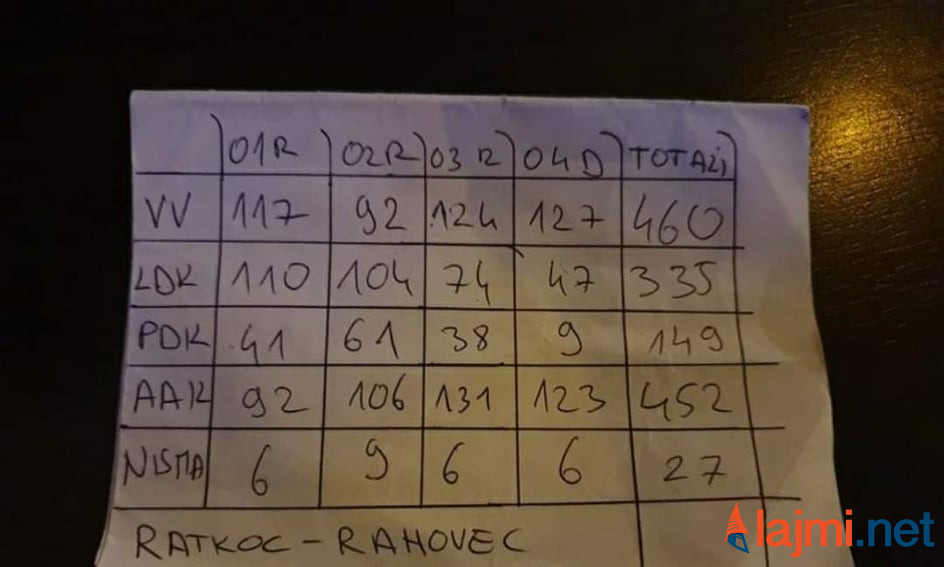 01R 02R 03R 04D TOTALI
VV 117 92 124 127 460
LDK 110 104 74 47 335
PDK 41 61 38 9 149
AAK 92 106 131 123 452
NISMA 6 9 6 6 27
RATKOC - RAHOVEC
lajmi.net